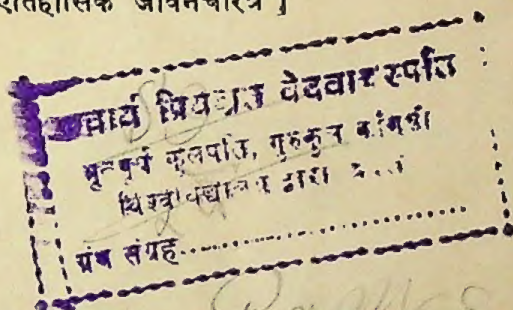 ऐतिहासिक जीवनचरित्र ]
आचार्य प्रियव्रत वेदवाचस्पति
भूतपूर्व कुलपति, गुरुकुल कांगड़ी
विश्वविद्यालय द्वारा
ग्रंथ संग्रह....................